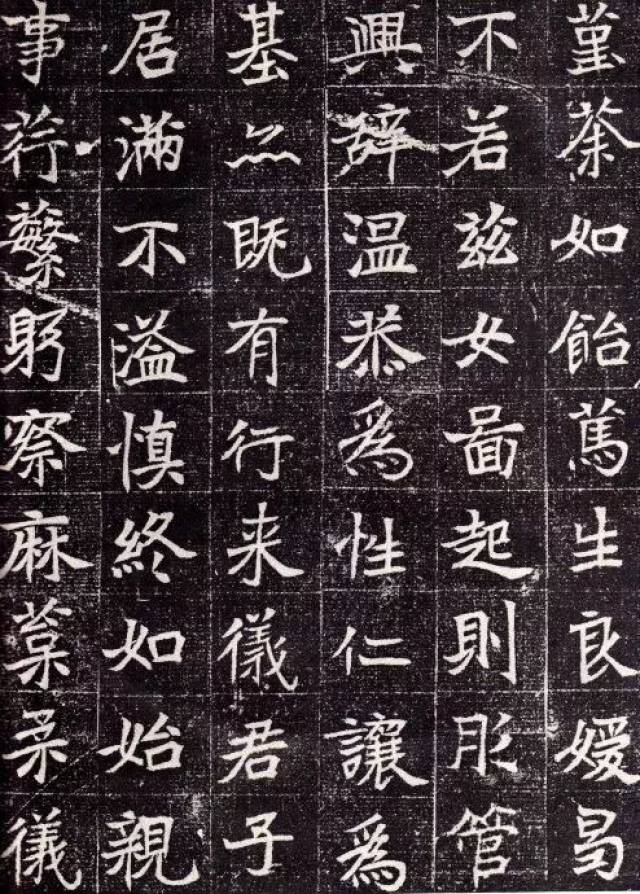 堇荼如飴篤生良媛曷
不若兹女啚起則彤管
興辭温恭爲性仁讓爲
基亦既有行来儀君子
居滿不溢慎終如始親
事荇蘩躬察麻枲柔儀